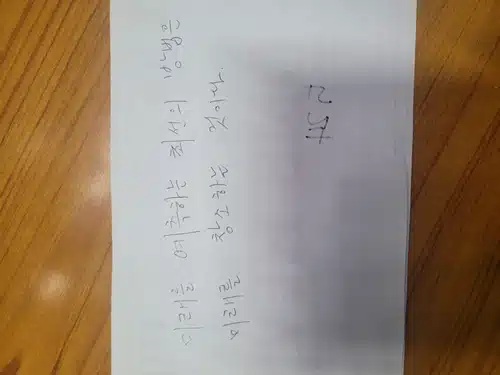 미래를 예측하는 최선의 방법은
미래를 창조하는 것이다.